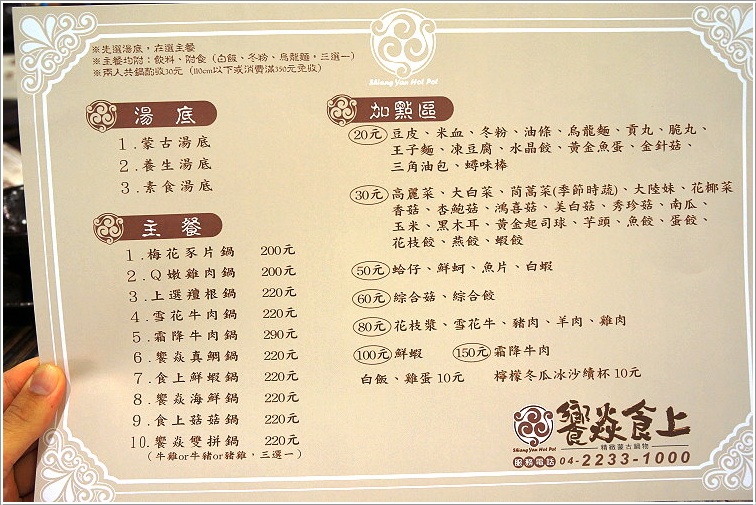 ※先選湯底，在選主餐
※主餐均附：飲料、附食（白飯、冬粉、烏龍麵，三選一）
※兩人共鍋酌收30元（110cm以下或消費滿350元免收）
Shiang Yan Hot Pot
湯底
1.蒙古湯底
2.養生湯底
3.素食湯底
主餐
1.梅花豕片鍋 200元
2.Q嫩雞肉鍋 200元
3.上選羶根鍋 220元
4.雪花牛肉鍋 220元
5.霜降牛肉鍋 290元
6.饗焱真鯛鍋 220元
7.食上鮮蝦鍋 220元
8.饗焱海鮮鍋 220元
9.食上菇菇鍋 220元
10.饗焱雙拼鍋 220元
（牛雞or牛豬or豬雞，三選一）
加點區
20元 豆皮、米血、冬粉、油條、烏龍麵、貢丸、脆丸、
王子麵、凍豆腐、水晶餃、黃金魚蛋、金針菇、
三角油包、蟳味棒
30元 高麗菜、大白菜、茼蒿菜(季節時蔬)、大陸妹、花椰菜
香菇、杏鮑菇、鴻喜菇、美白菇、秀珍菇、南瓜、
玉米、黑木耳、黃金起司球、芋頭、魚餃、蛋餃、
花枝餃、燕餃、蝦餃
50元 蛤仔、鮮蚵、魚片、白蝦
60元 綜合菇、綜合餃
80元 花枝漿、雪花牛、豬肉、羊肉、雞肉
100元 鮮蝦 150元 霜降牛肉
白飯、雞蛋10元 檸檬冬瓜冰沙續杯10元
Shiang Yan Hot Pot
饗焱食上
精緻蒙古鍋物
服務電話 04-2233-1000